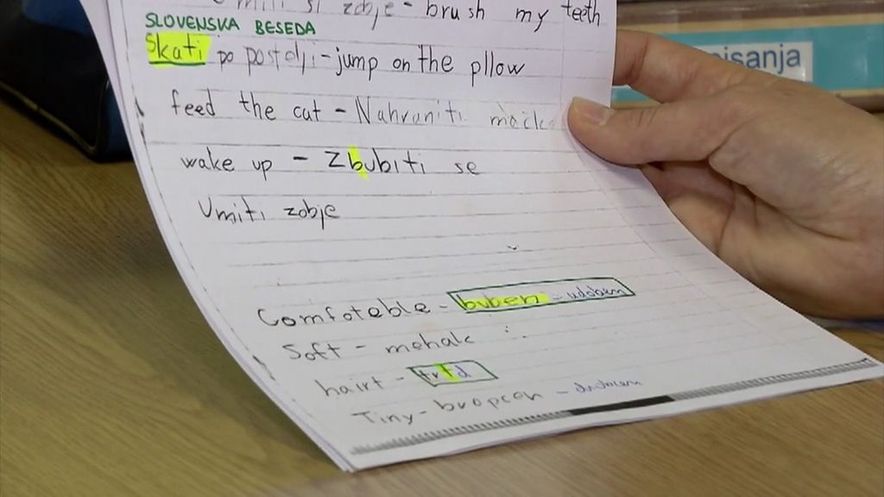 si zobje - brush my teeth
SLOVENSKA BESEDA
Skati po postelji - jump on the pllow
pisanja
feed the cat - Nahraniti
wake up - Zbubiti se
Umiti zobje
Comfoteble - buben - udoben
Soft - mehak
hairt - trtd
Tiny - bropcen